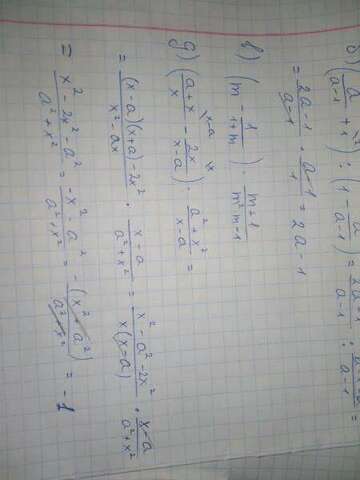 б) (a/(a-1) + 1) : (1 - a/(a-1)) = (2a-1)/(a-1) :
= (2a-1)/(a-1) · (a-1)/1 = 2a-1
в) (m - 1/(1+m)) · (m+1)/(m²m-1)
g) ((a+x)/x - 2x/(x-a)) · (a²+x²)/(x-a) =
= ((x-a)(x+a)-2x²)/(x²-ax) · (x-a)/(a²+x²) = (x²-a²-2x²)/(x(x-a)) · (x-a)/(a²+x²)
= (x²-2x²-a²)/(a²+x²) = (-x²-a²)/(a²+x²) = -(x²+a²)/(a²+x²) = -1